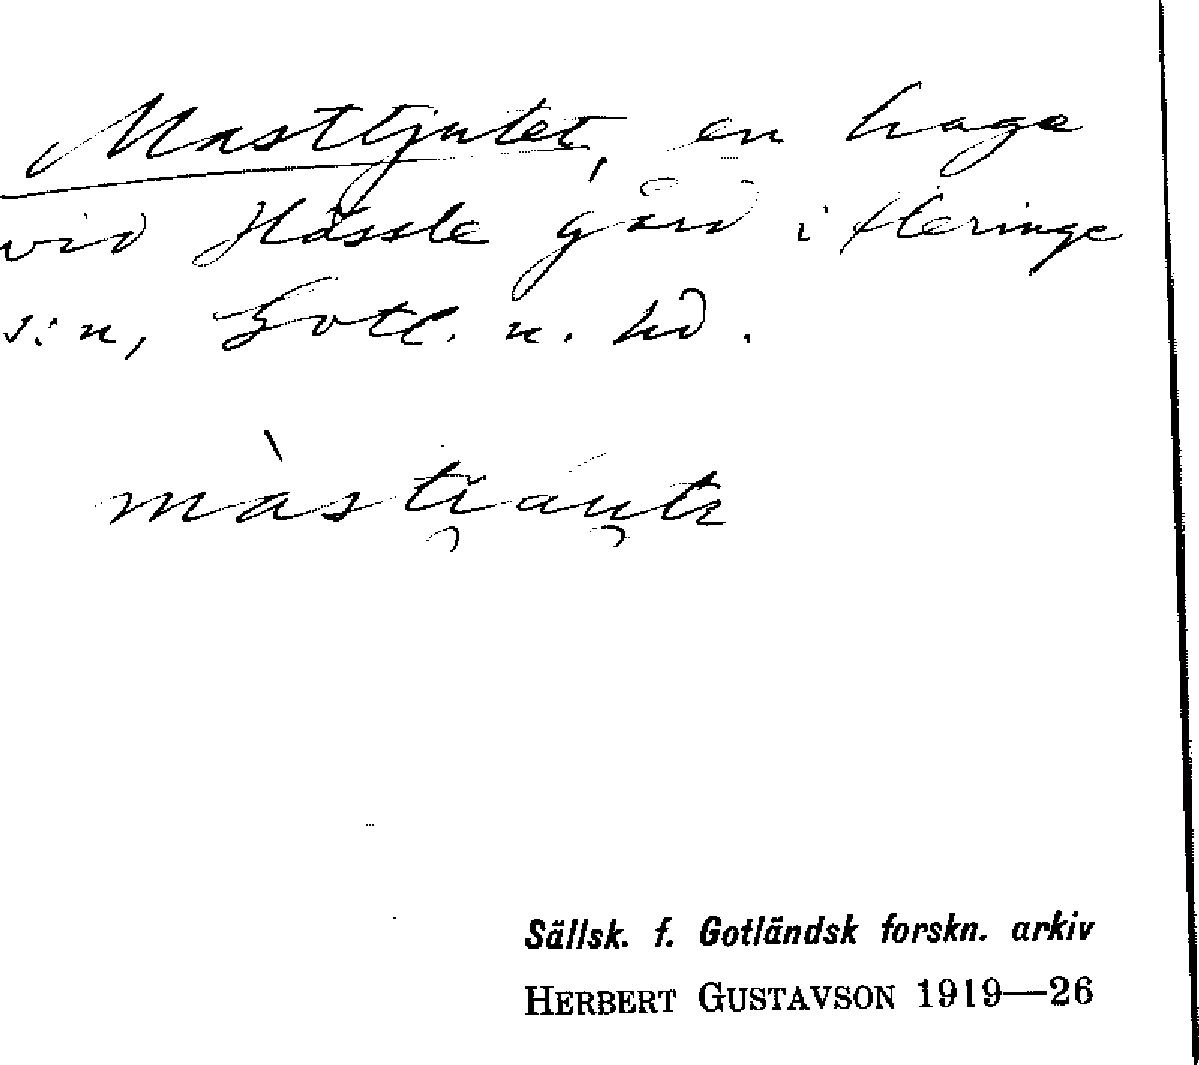 Masttjutet, en hage
vid Hässle gård i Fleringe
s:n, Gotl. n. hd.
Sällsk. f. Gotländsk forskn. arkiv
HERBERT GUSTAVSON 1919—26